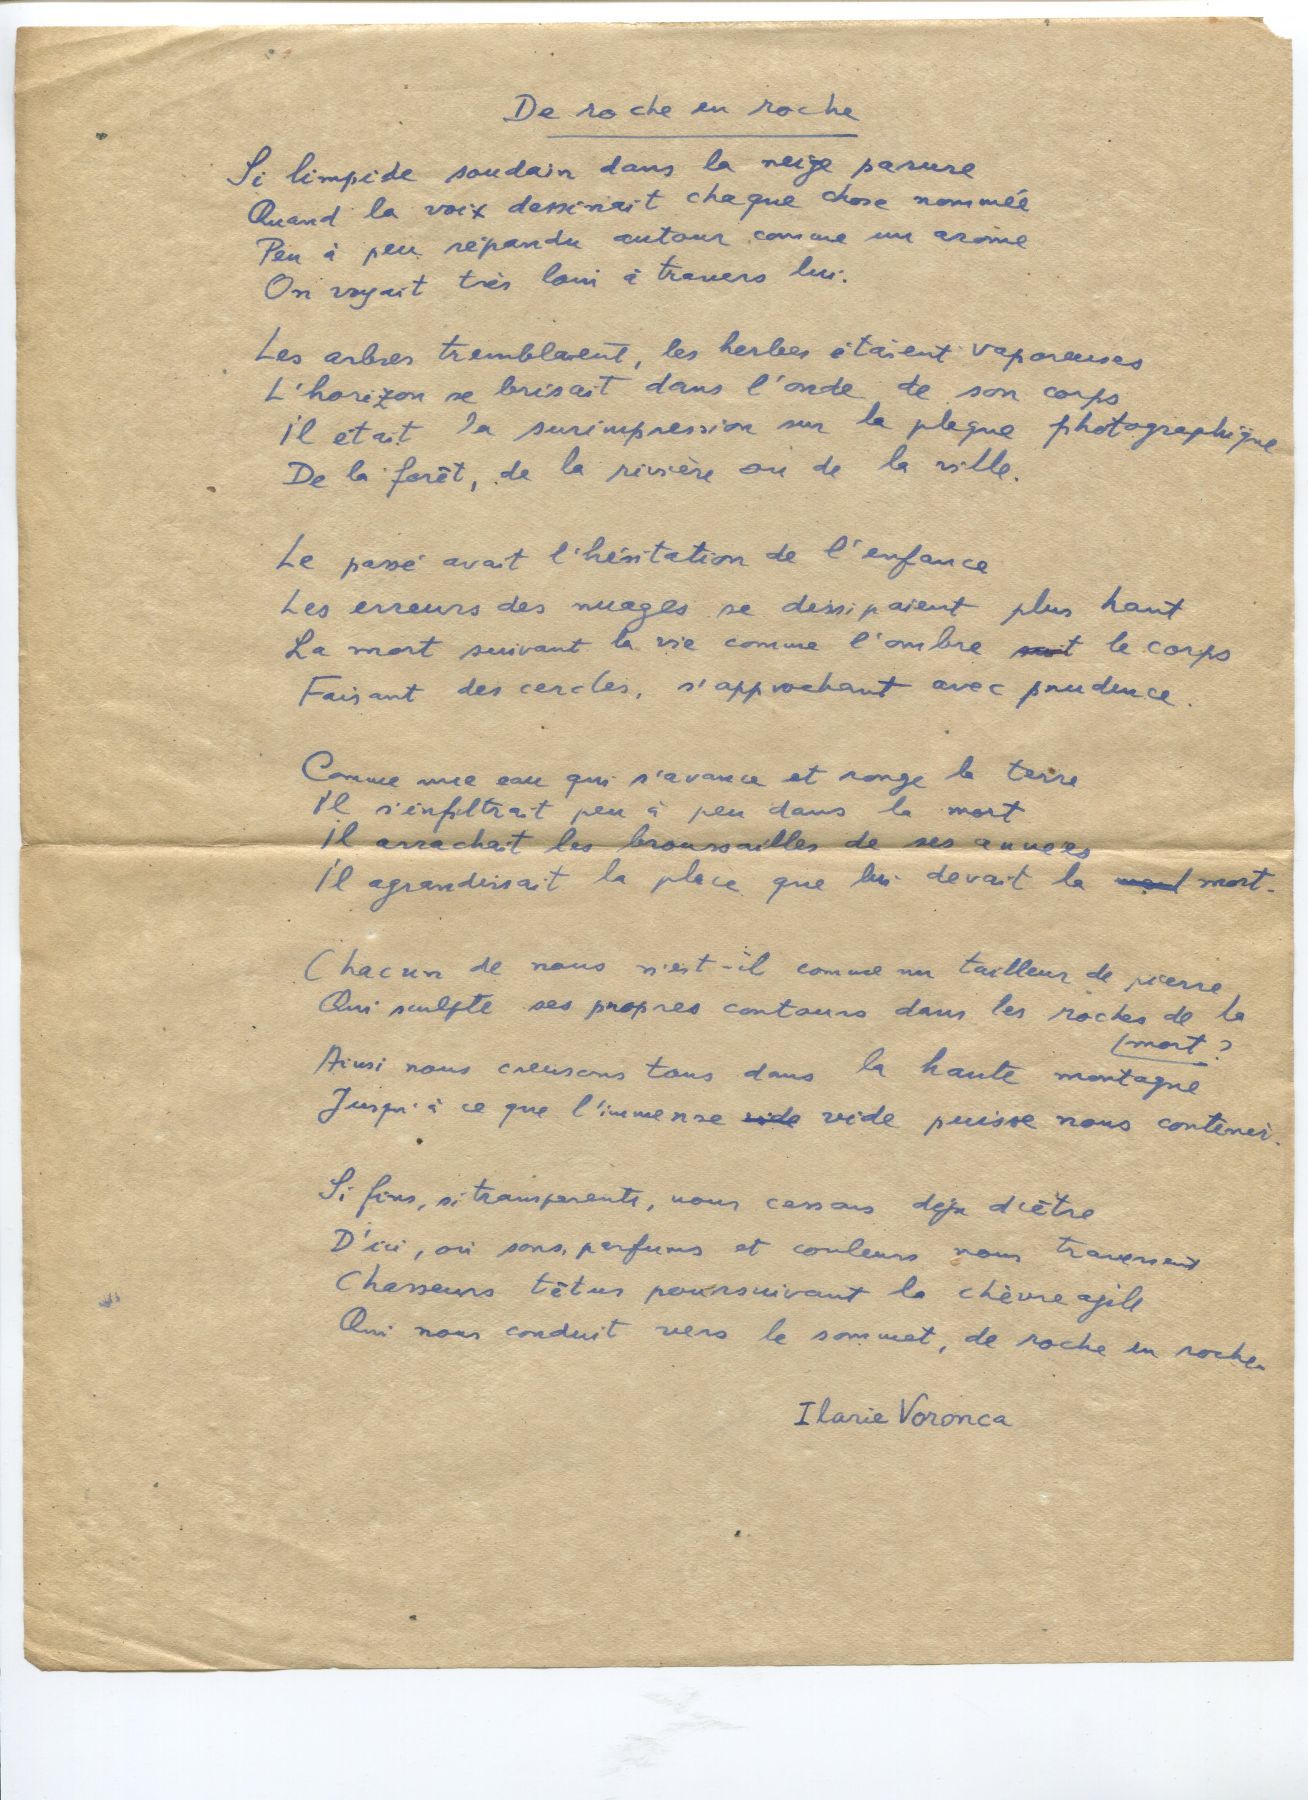 De roche en roche
Si limpide soudain dans la neige parure
Quand la voix dessinait chaque chose nommée
Peu à peu répandu autour comme un arome
On voyait très loin à travers lui.
Les arbres tremblaient, les herbes étaient vaporeuses
L'horizon se brisait dans l'onde de son corps
Il était la surimpression sur la plaque photographique
De la forêt, de la rivière ou de la ville.
Le passé avait l'hésitation de l'enfance
Les erreurs des nuages se dissipaient plus haut
La mort suivant la vie comme l'ombre suit le corps
Faisant des cercles, s'approchant avec prudence.
Comme une eau qui s'avance et ronge la terre
Il s'infiltrait peu à peu dans la mort
Il arrachait les broussailles de ses années
Il agrandissait la place que lui devait la mort.
Chacun de nous n'est-il comme un tailleur de pierre
Qui sculpte ses propres contours dans les roches de la
(mort ?
Ainsi nous creusons tous dans la haute montagne
Jusqu'à ce que l'immense vide vide puisse nous contenir.
Si fins, si transparents, nous cessons déjà d'être
D'ici, où sons, parfums et couleurs nous traversent
Chasseurs têtus poursuivant la chèvre agile
Qui nous conduit vers le sommet, de roche en roche.
Ilarie Voronca